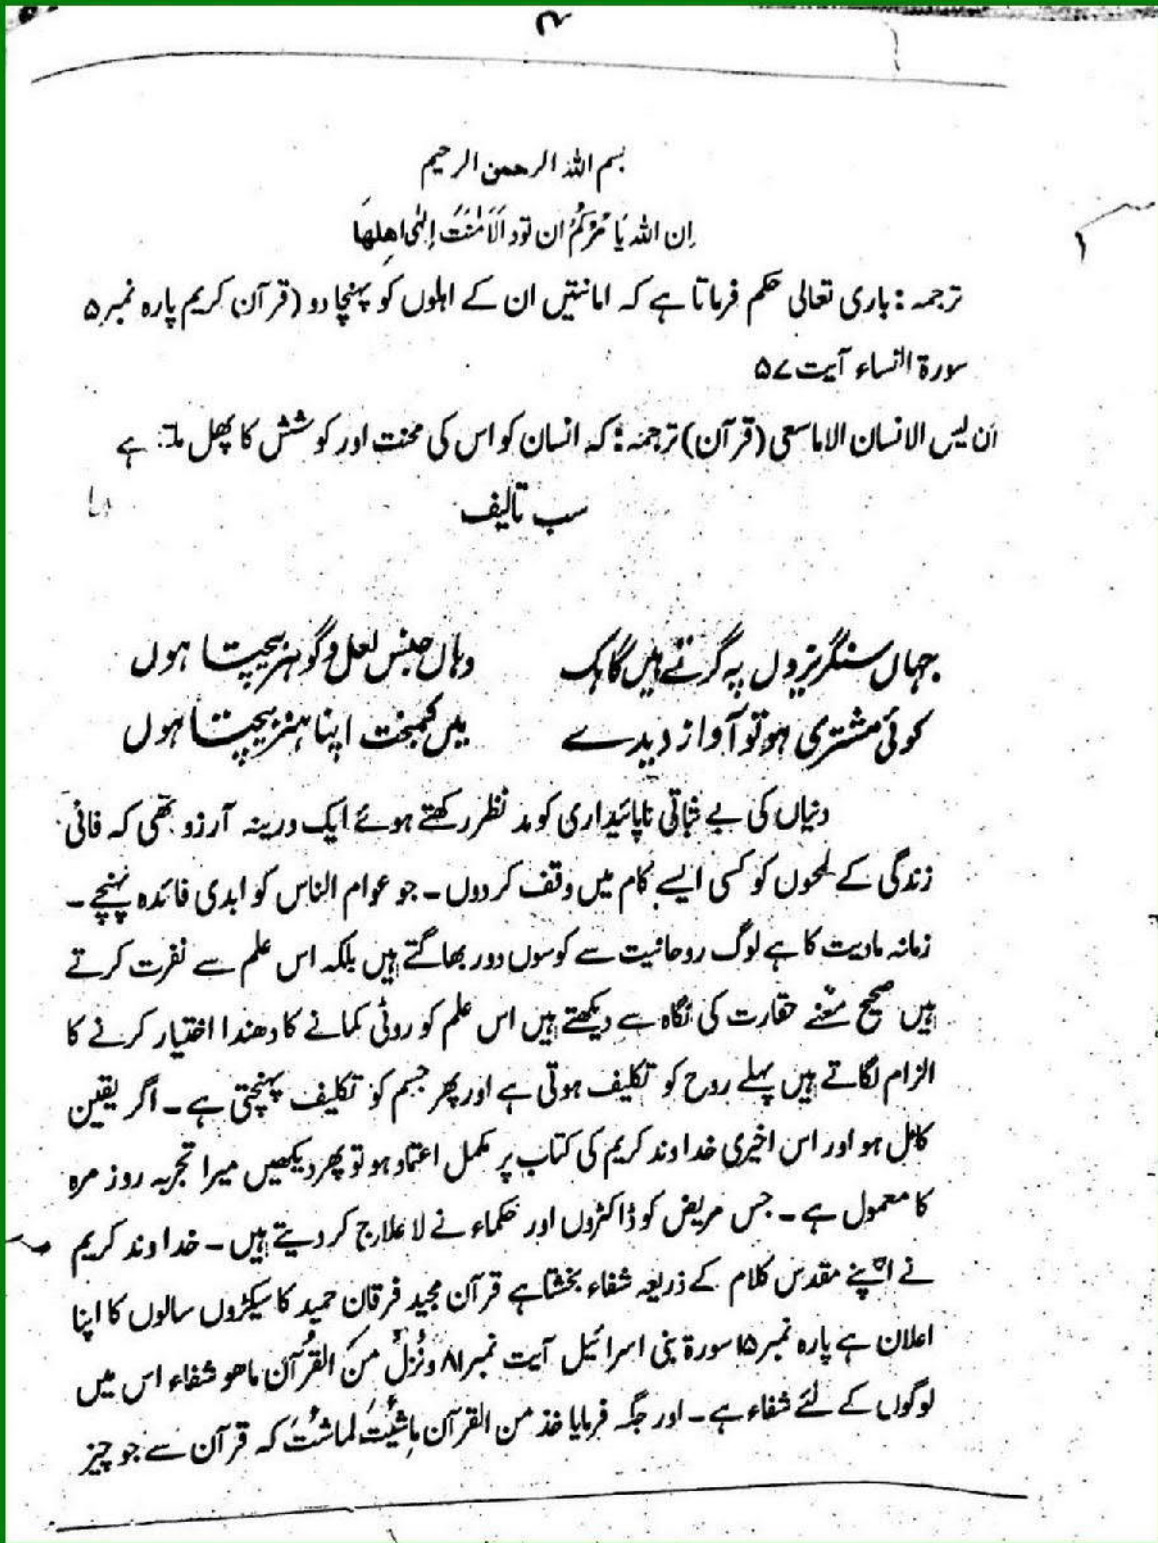 ۴
بسم اللہ الرحمن الرحیم
اِن اللہ یَا مُرُکُمُ ان تود اَلاَمٰنٰتَ اِلٰٓی اھِلھَا
ترجمہ : باری تعالی حکم فرماتا ہے کہ امانتیں ان کے اہلوں کو پہنچا دو (قرآن کریم پارہ نمبر ۵
سورۃ النساء آیت ۵۷
اَن لیس الانسان الاماسعی (قرآن) ترجمہ : کہ انسان کو اس کی محنت اور کوشش کا پھل ہے
سبب تالیف
جہاں سنگریزوں پہ گرتے ہیں گاہک وہاں جنس لعل و گوہر بیچتا ہوں
کوئی مشتری ہو تو آواز دیدے میں کمبخت اپنا ہنر بیچتا ہوں
دنیاں کی بے ثباتی ناپائیداری کو مد نظر رکھتے ہوئے ایک ورینہ آرزو تھی کہ فانی
زندگی کے لمحوں کو کسی ایسے کام میں وقف کردوں ۔ جو عوام الناس کو ابدی فائدہ پہنچے ۔
زمانہ مادیت کا ہے لوگ روحانیت سے کوسوں دور بھاگتے ہیں بلکہ اس علم سے نفرت کرتے
ہیں صحیح معنے حقارت کی نگاہ سے دیکھتے ہیں اس علم کو روئی کمانے کا دھندا اختیار کرنے کا
الزام لگاتے ہیں پہلے روح کو تکلیف ہوتی ہے اور پھر جسم کو تکلیف پہنچتی ہے ۔ اگر یقین
کامل ہو اور اس اخیری خداوند کریم کی کتاب پر مکمل اعتماد ہو تو پھر دیکھیں میرا تجربہ روز مرہ
کا معمول ہے ۔ جس مریض کو ڈاکٹروں اور حکماء نے لا علاج کر دیتے ہیں ۔ خداوند کریم
نے اپنے مقدس کلام کے ذریعہ شفاء بخشا ہے قرآن مجید فرقان حمید کا سیکڑوں سالوں کا اپنا
اعلان ہے پارہ نمبر ۱۵ سورۃ بنی اسرائیل آیت نمبر ۸۱ ونُزلُ منَ القرُآن ماھو شفاء اس میں
لوگوں کے لئے شفاء ہے ۔ اور جگہ فرمایا خذ من القرآن ماِشئیتَ لماشئتَ کہ قرآن سے جو چیز